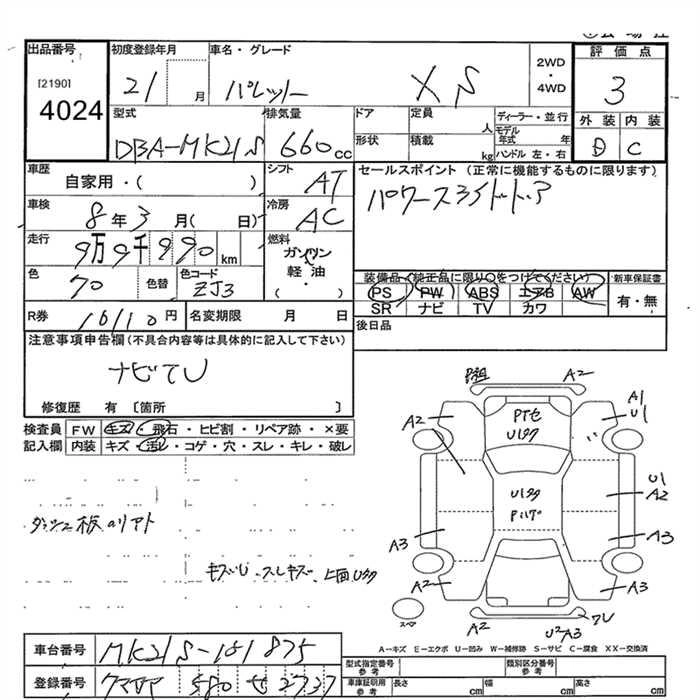 出品番号
[2190]
4024
初度登録年月
21 月
車名・グレード
パレット XS
2WD
・
4WD
評価点
3
外装 内装
D C
型式
DBA-MK21S
排気量
660cc
ドア
形状
定員
人
積載
kg
ディーラー・並行
モデル年式 年
ハンドル 左・右
車歴
自家用・( )
シフト
AT
セールスポイント (正常に機能するものに限ります)
パワースライドドア
車検
8年3月( 日)
冷房
AC
走行
9万9千990km
燃料
ガソリン
軽油・
( )
色
70
色替
色コード
ZJ3
装備品(純正品に限り○をつけてください)
PS PW ABS エアB AW
SR ナビ TV カワ
新車保証書
有・無
R券
10110円
名変期限 月 日
後日品
注意事項申告欄(不具合内容等は具体的に記入して下さい)
ナビてU
修復歴 有 〔箇所 〕
検査員
記入欄
FW キズ・飛石・ヒビ割・リペア跡・×要
内装 キズ・汚レ・コゲ・穴・スレ・キレ・破レ
A2
A2
PTセ
Uタタ
A1
U1
Uタタ
Pハゲ
U1
A2
A3
A3
A2
A3
A2
U2A3
スペア
キズU スレキズ
A-キズ E-エクボ U-凹み W-補修跡 S-サビ C-腐食 XX-交換済
車台番号
MK21S-181875
登録番号
型式指定番号
参考
類別区分番号
参考
車庫証明用
参考
長さ cm
幅 cm
高さ cm